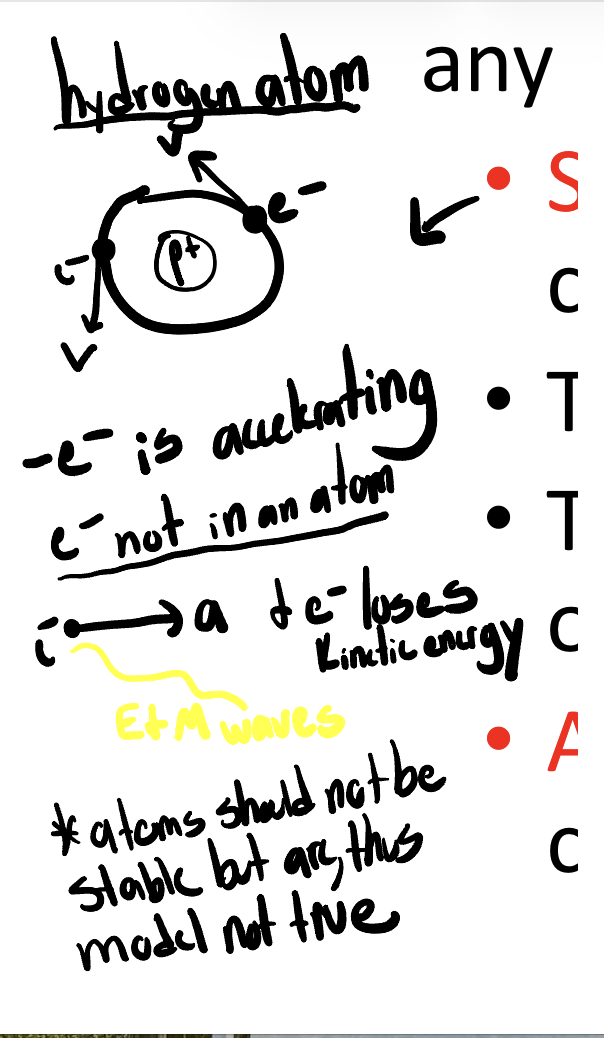 hydrogen atom
any
v
e-
p+
e-
v
-e- is accelerating
e- not in an atom
e- a & e- loses
kinetic energy
E&M waves
*atoms should not be
stable but are, thus
model not true
• S
c
• T
• T
c
• A
c